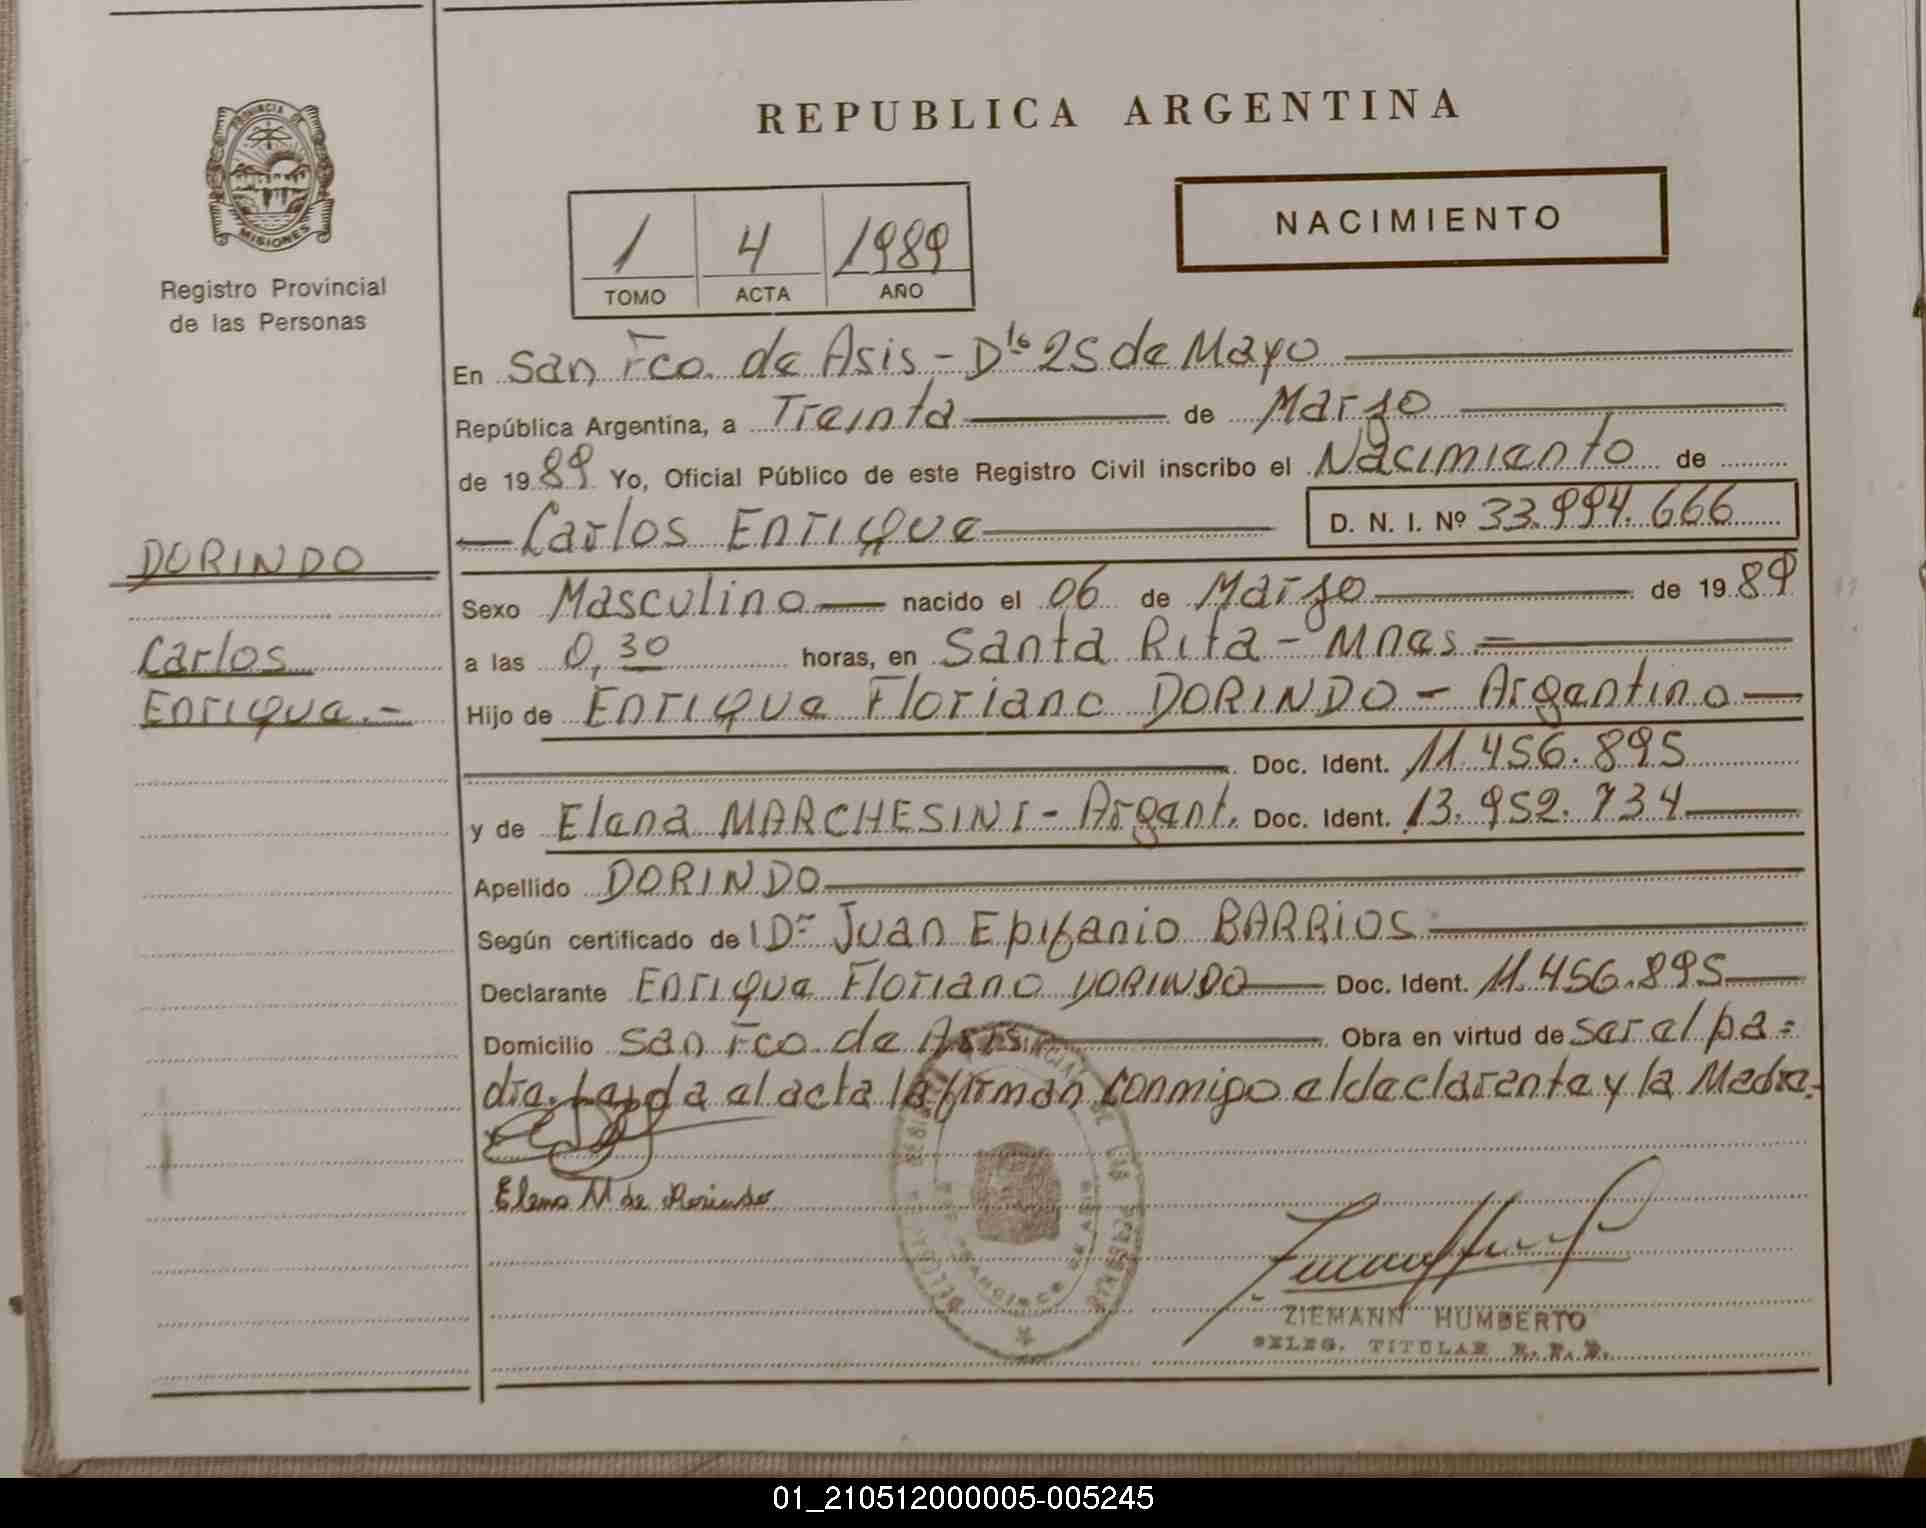 REPUBLICA ARGENTINA
PROVINCIA DE MISIONES
Registro Provincial
de las Personas
NACIMIENTO
1 4 1989
TOMO ACTA AÑO
En San Fco. de Asis - Dto 25 de Mayo
República Argentina, a Treinta de Marzo
de 1989 Yo, Oficial Público de este Registro Civil inscribo el Nacimiento de
Carlos Enrique D. N. I. Nº 33.994.666
DORINDO
Carlos
Enrique.-
Sexo Masculino nacido el 06 de Marzo de 1989
a las 0,30 horas, en Santa Rita - Mnes =
Hijo de Enrique Floriano DORINDO - Argentino
Doc. Ident. 11.456.895
y de Elena MARCHESINI - Argent. Doc. Ident. 13.952.734
Apellido DORINDO
Según certificado de Dr Juan Epifanio BARRIOS
Declarante Enrique Floriano DORINDO Doc. Ident. 11.456.895
Domicilio San Fco de Asis Obra en virtud de ser el pa=
dre. Leida el acta la firman conmigo el declarente y la Madre.
Elena M de Dorindo
ZIEMANN HUMBERTO
DELEG. TITULAR R. P. P.
01_210512000005-005245